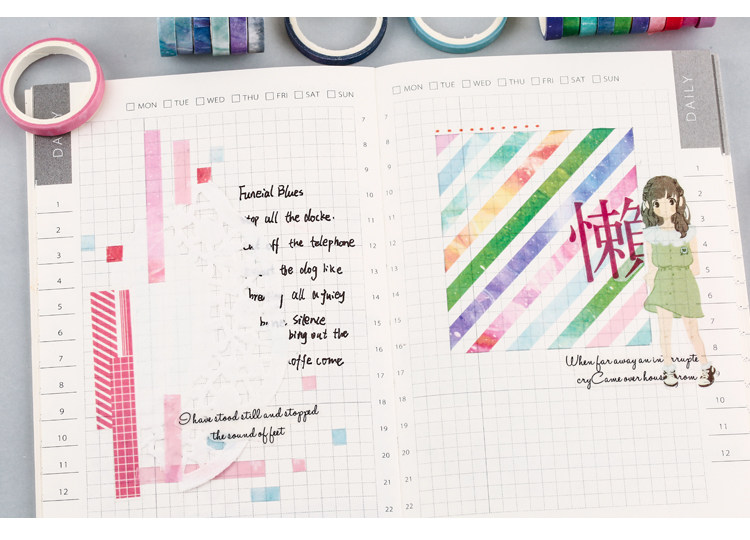 DAILY
MON TUE WED THU FRI SAT SUN
1
2
3
4
5
6
7
8
9
10
11
12
Funeial Blues
top all the clocke.
ff the telephone
the dog like
all a juicy
silence
bing out the
offe come
I have stood still and stopped
the sound of feet
7
8
9
10
11
12
13
14
15
16
17
18
19
20
21
22
MON TUE WED THU FRI SAT SUN
DAILY
7
8
9
10
11
12
13
14
15
16
懶
When far away an in rrupte
cry Came over hous from
21
22
1
2
3
4
5
10
11
12